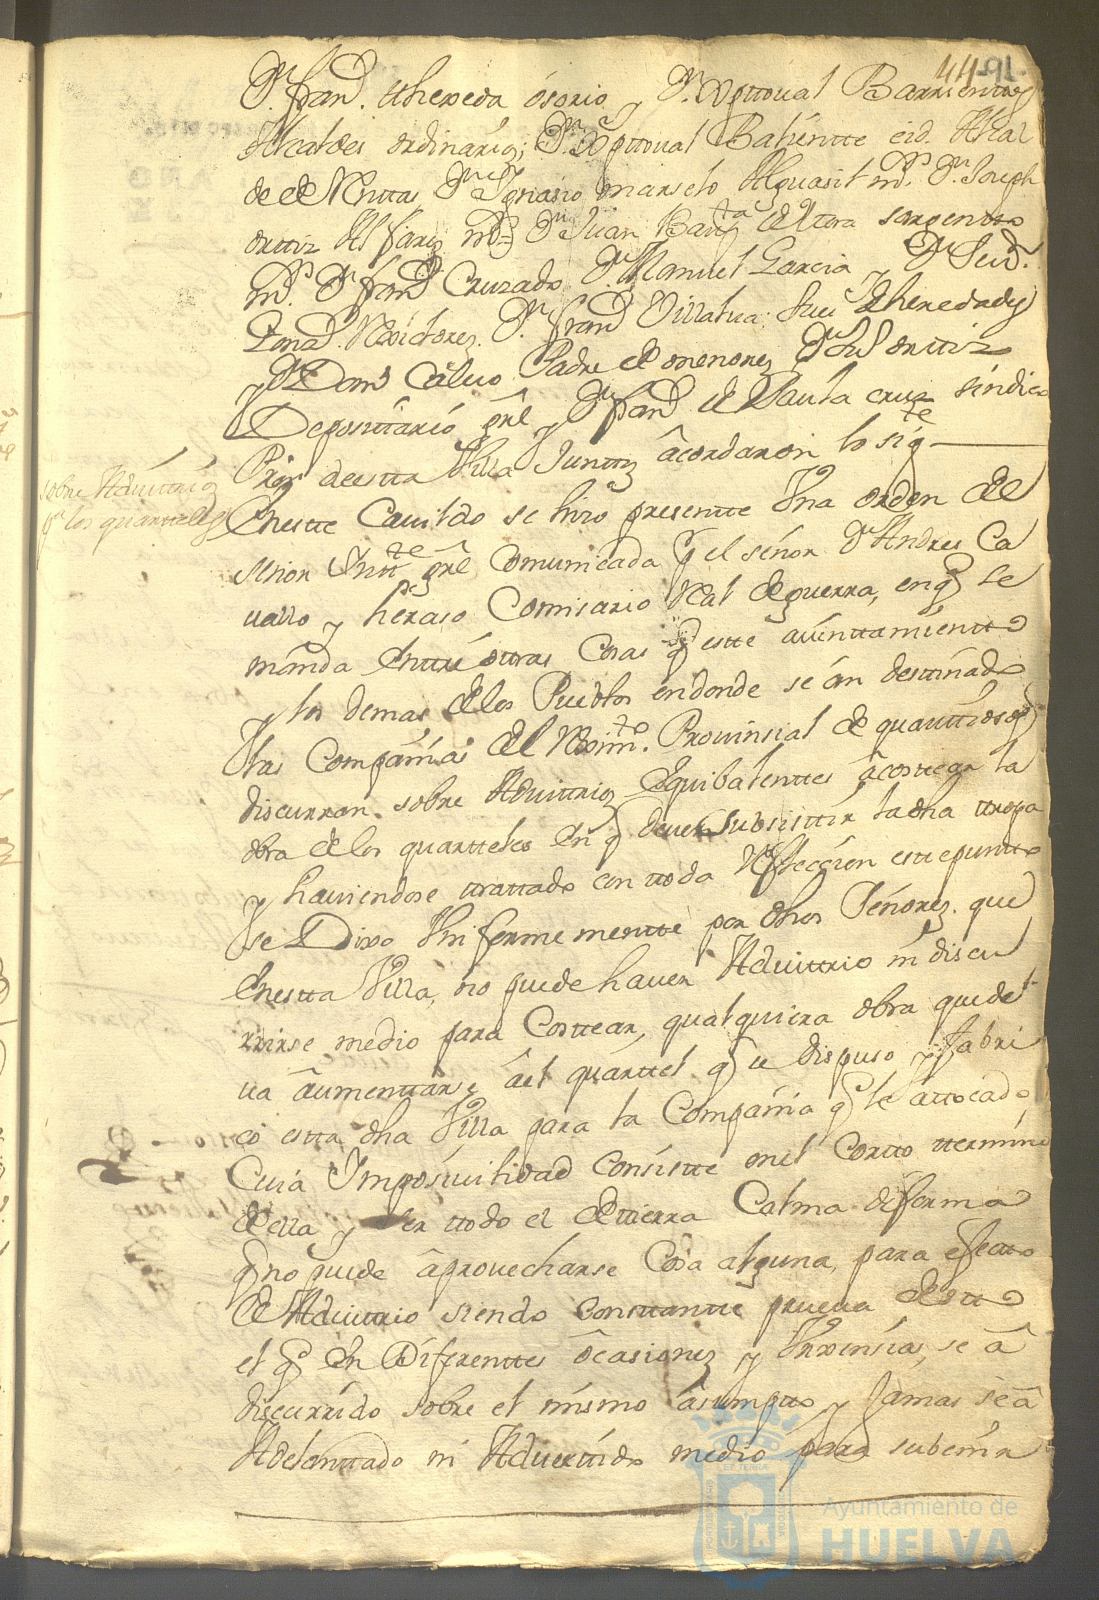 44 91
Dn. Franco. thereda ósorio y Dn. Xpttoual Barrienttos
Alcaldes ordinários; Dn. Xpttoual Bahientte eid. Alcal
de de Dn. Ignasio marselo Alguasil mr. Dn. Joseph
orttiz Alfares mr. Dn. Juan Bautta. de sargentto
mr. Dn. Franco. Cruzado Dn. Manuel Garcia y Dn.
Rexidores. Dn. Franco. Villalua Jues de heredades
y Dn. Domo. Caluo Padre de menores Dn. orttiz
Deposittário grl. y Dn. Franco. de Santa cruz síndico
Pror. de estta Villa Junttos acordaron lo sigte.
sobre Aduittrios
pa. los quartteles
Enestte Cauildo se hizo presentte Vna orden del
señor Yntte. grl. comunicada pr. el señor Dn. Andres Ca
uallo y heraso Comisario Real de guerra, en q se
manda enttre ottras Cosas q estte aiunttamientto
y los demas de los Pueblos endonde se án desttinado
las Compañias del Reximto. Provinsial de quanttiosos
discurran sobre Aduittrios Equibalenttes a costtear la
obra de los quartteles en q deuen Subsisttir la dha ttropa
y hauiendose ttrattado con ttoda reflección estte puntto
se Dixo Vniformementte por dhos Señores que
Enestta Villa, no puede hauer Aduittrio ni discu
rrirse medio para Costtear, qualquiera obra que de
ua aumenttarse ál quarttel q se dispuso y fabri
có estta dha Villa para la Compañia q le a ttocado,
Cuia Imposiuilidad consistte en el Cortto ttermino
de ella y ser ttodo el de ttierra Calma de forma
q no puede aprovecharse Cosa alguna, para efectto
de Aduittrio siendo consttantte prueua de estto
el q En Diferenttes ócasiones y Vrxensias, se á
discurrido sobre el mismo asumptto y Jamas se á
Adelanttado ni Aduerttido medio para subenir
Ayuntamiento de
HUELVA